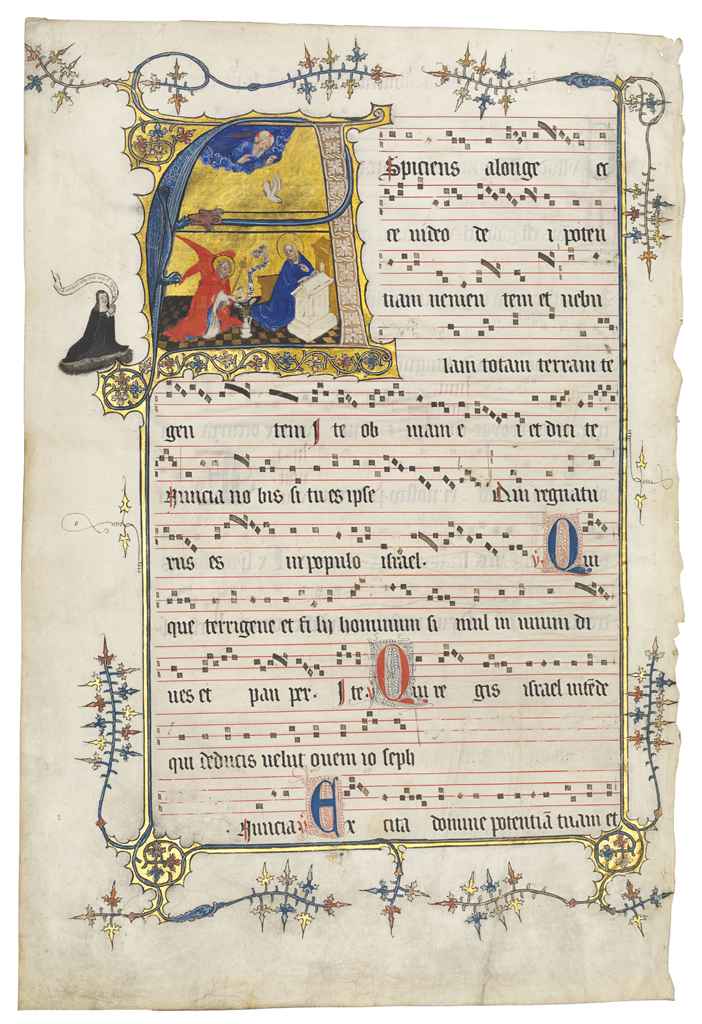 Aspiciens alonge ec
ce video de i poten
tiam venien tem et nebu
lam totam terram te
gen tem Ite ob viam e i et dici te
Nuncia no bis si tu es ipse Qui regnatu
rus es in populo israel. V Qui
que terrigene et fi lij hominum si mul in unum di
ves et pau per. Ite. V Qui re gis israel intēde
qui deducis velut ovem io seph
Nuncia V Ex cita domine potentiā tuam et